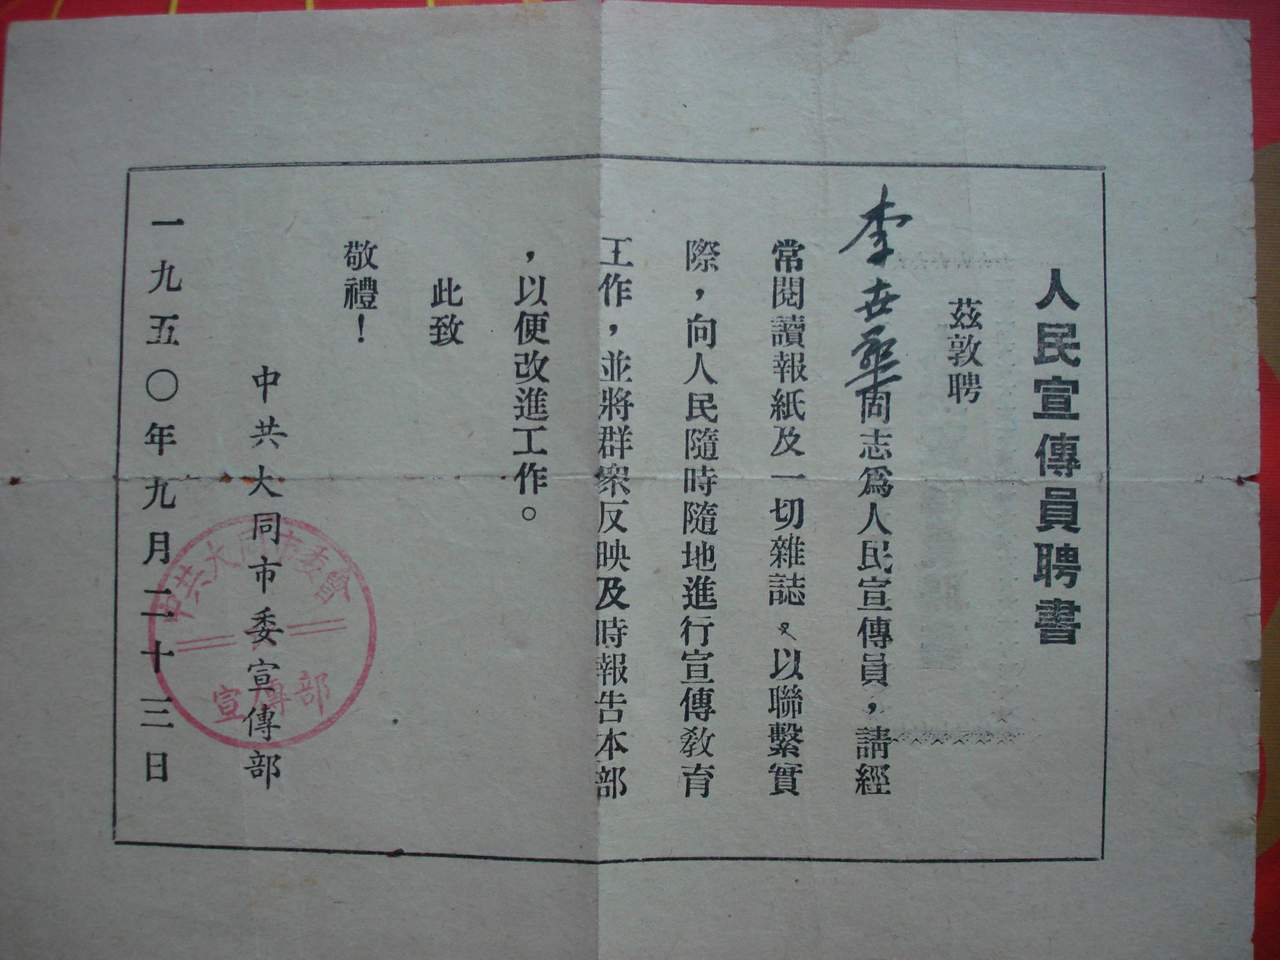 人民宣傳員聘書
茲敦聘
李世華同志爲人民宣傳員，請經
常閱讀報紙及一切雜誌。又以聯繫實
際，向人民隨時隨地進行宣傳教育
工作，並將群衆反映及時報告本部
，以便改進工作。
此致
敬禮！
中共大同市委宣傳部
一九五〇年九月二十三日
中共大同市委會
宣傳部